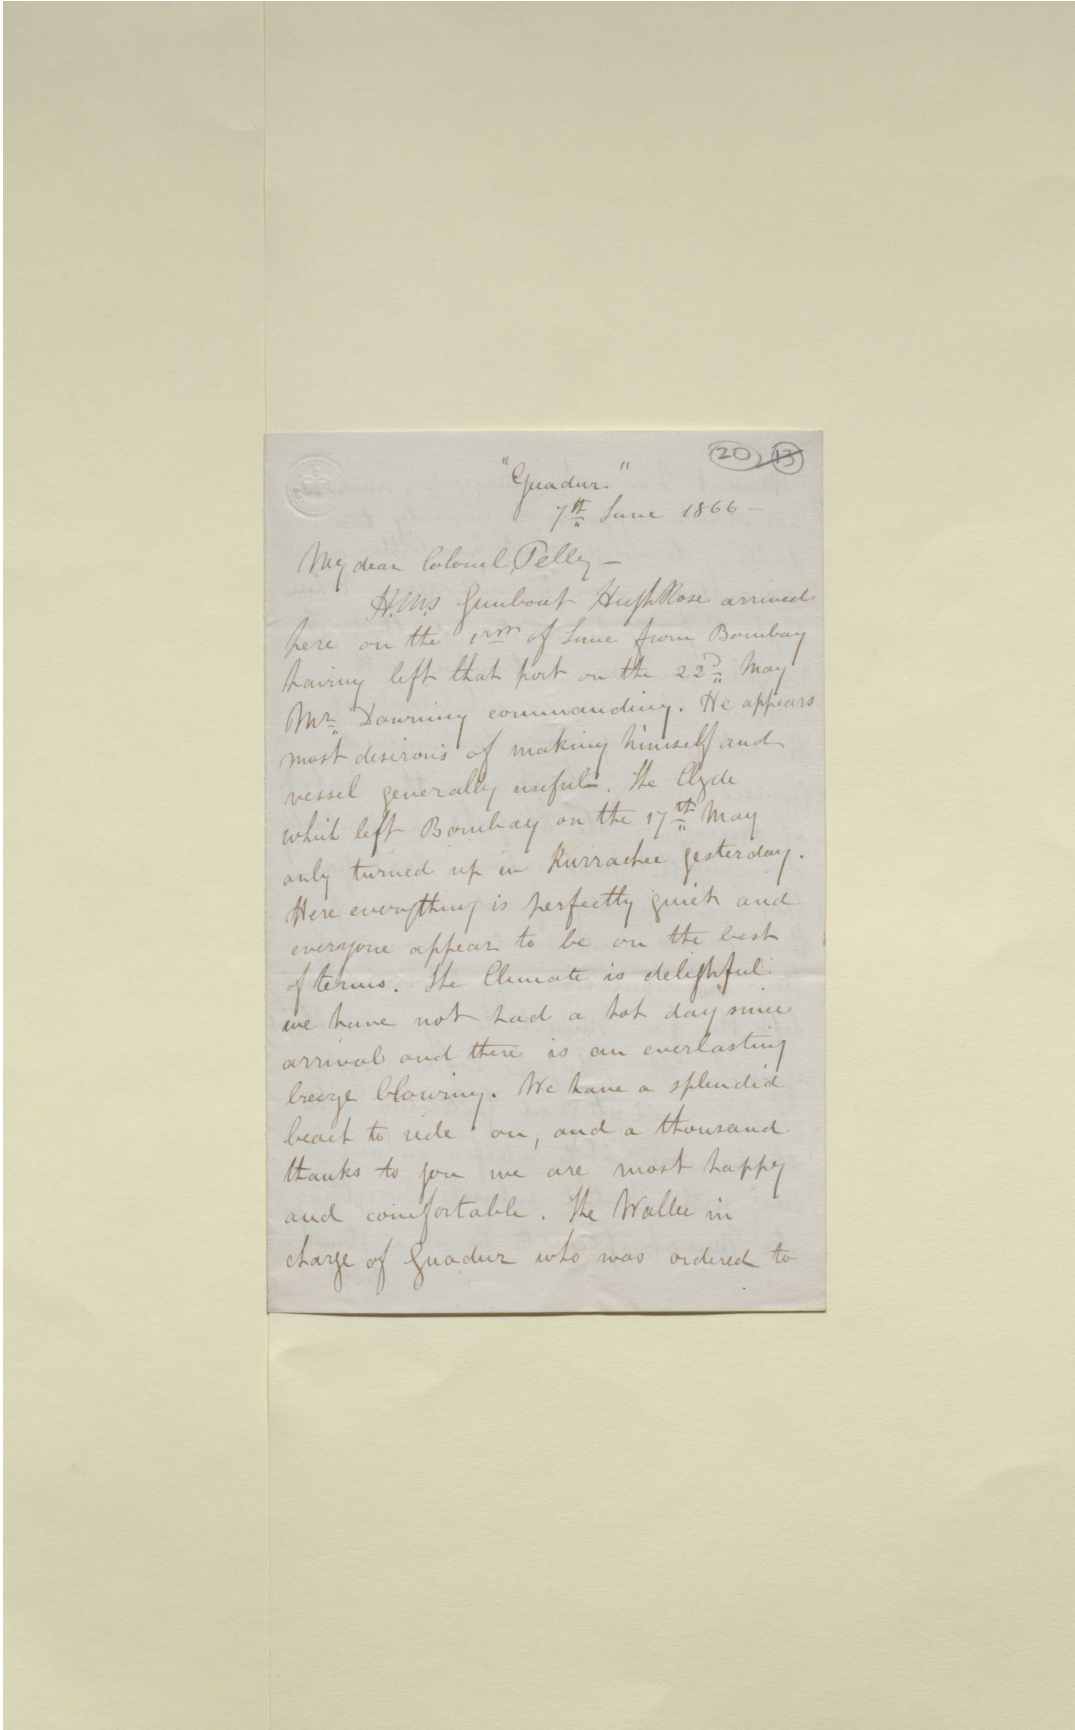 20 13
"Guadur"
7th June 1866 -
My dear Colonel Pelly -
H.M.S Gunboat Hugh Rose arrived
here on the of June from Bombay
having left that port on the 22d May
Mr Downing commanding. He appears
most desirous of making himself and
vessel generally useful. The Clyde
which left Bombay on the 17th May
only turned up in Kurrachee yesterday.
Here everything is perfectly quiet and
everyone appear to be on the best
of terms. The Climate is delightful
we have not had a hot day since
arrival and there is an everlasting
breeze blowing. We have a splendid
beach to ride on, and a thousand
thanks to you we are most happy
and comfortable. The Wallee in
charge of Guadur who was ordered to